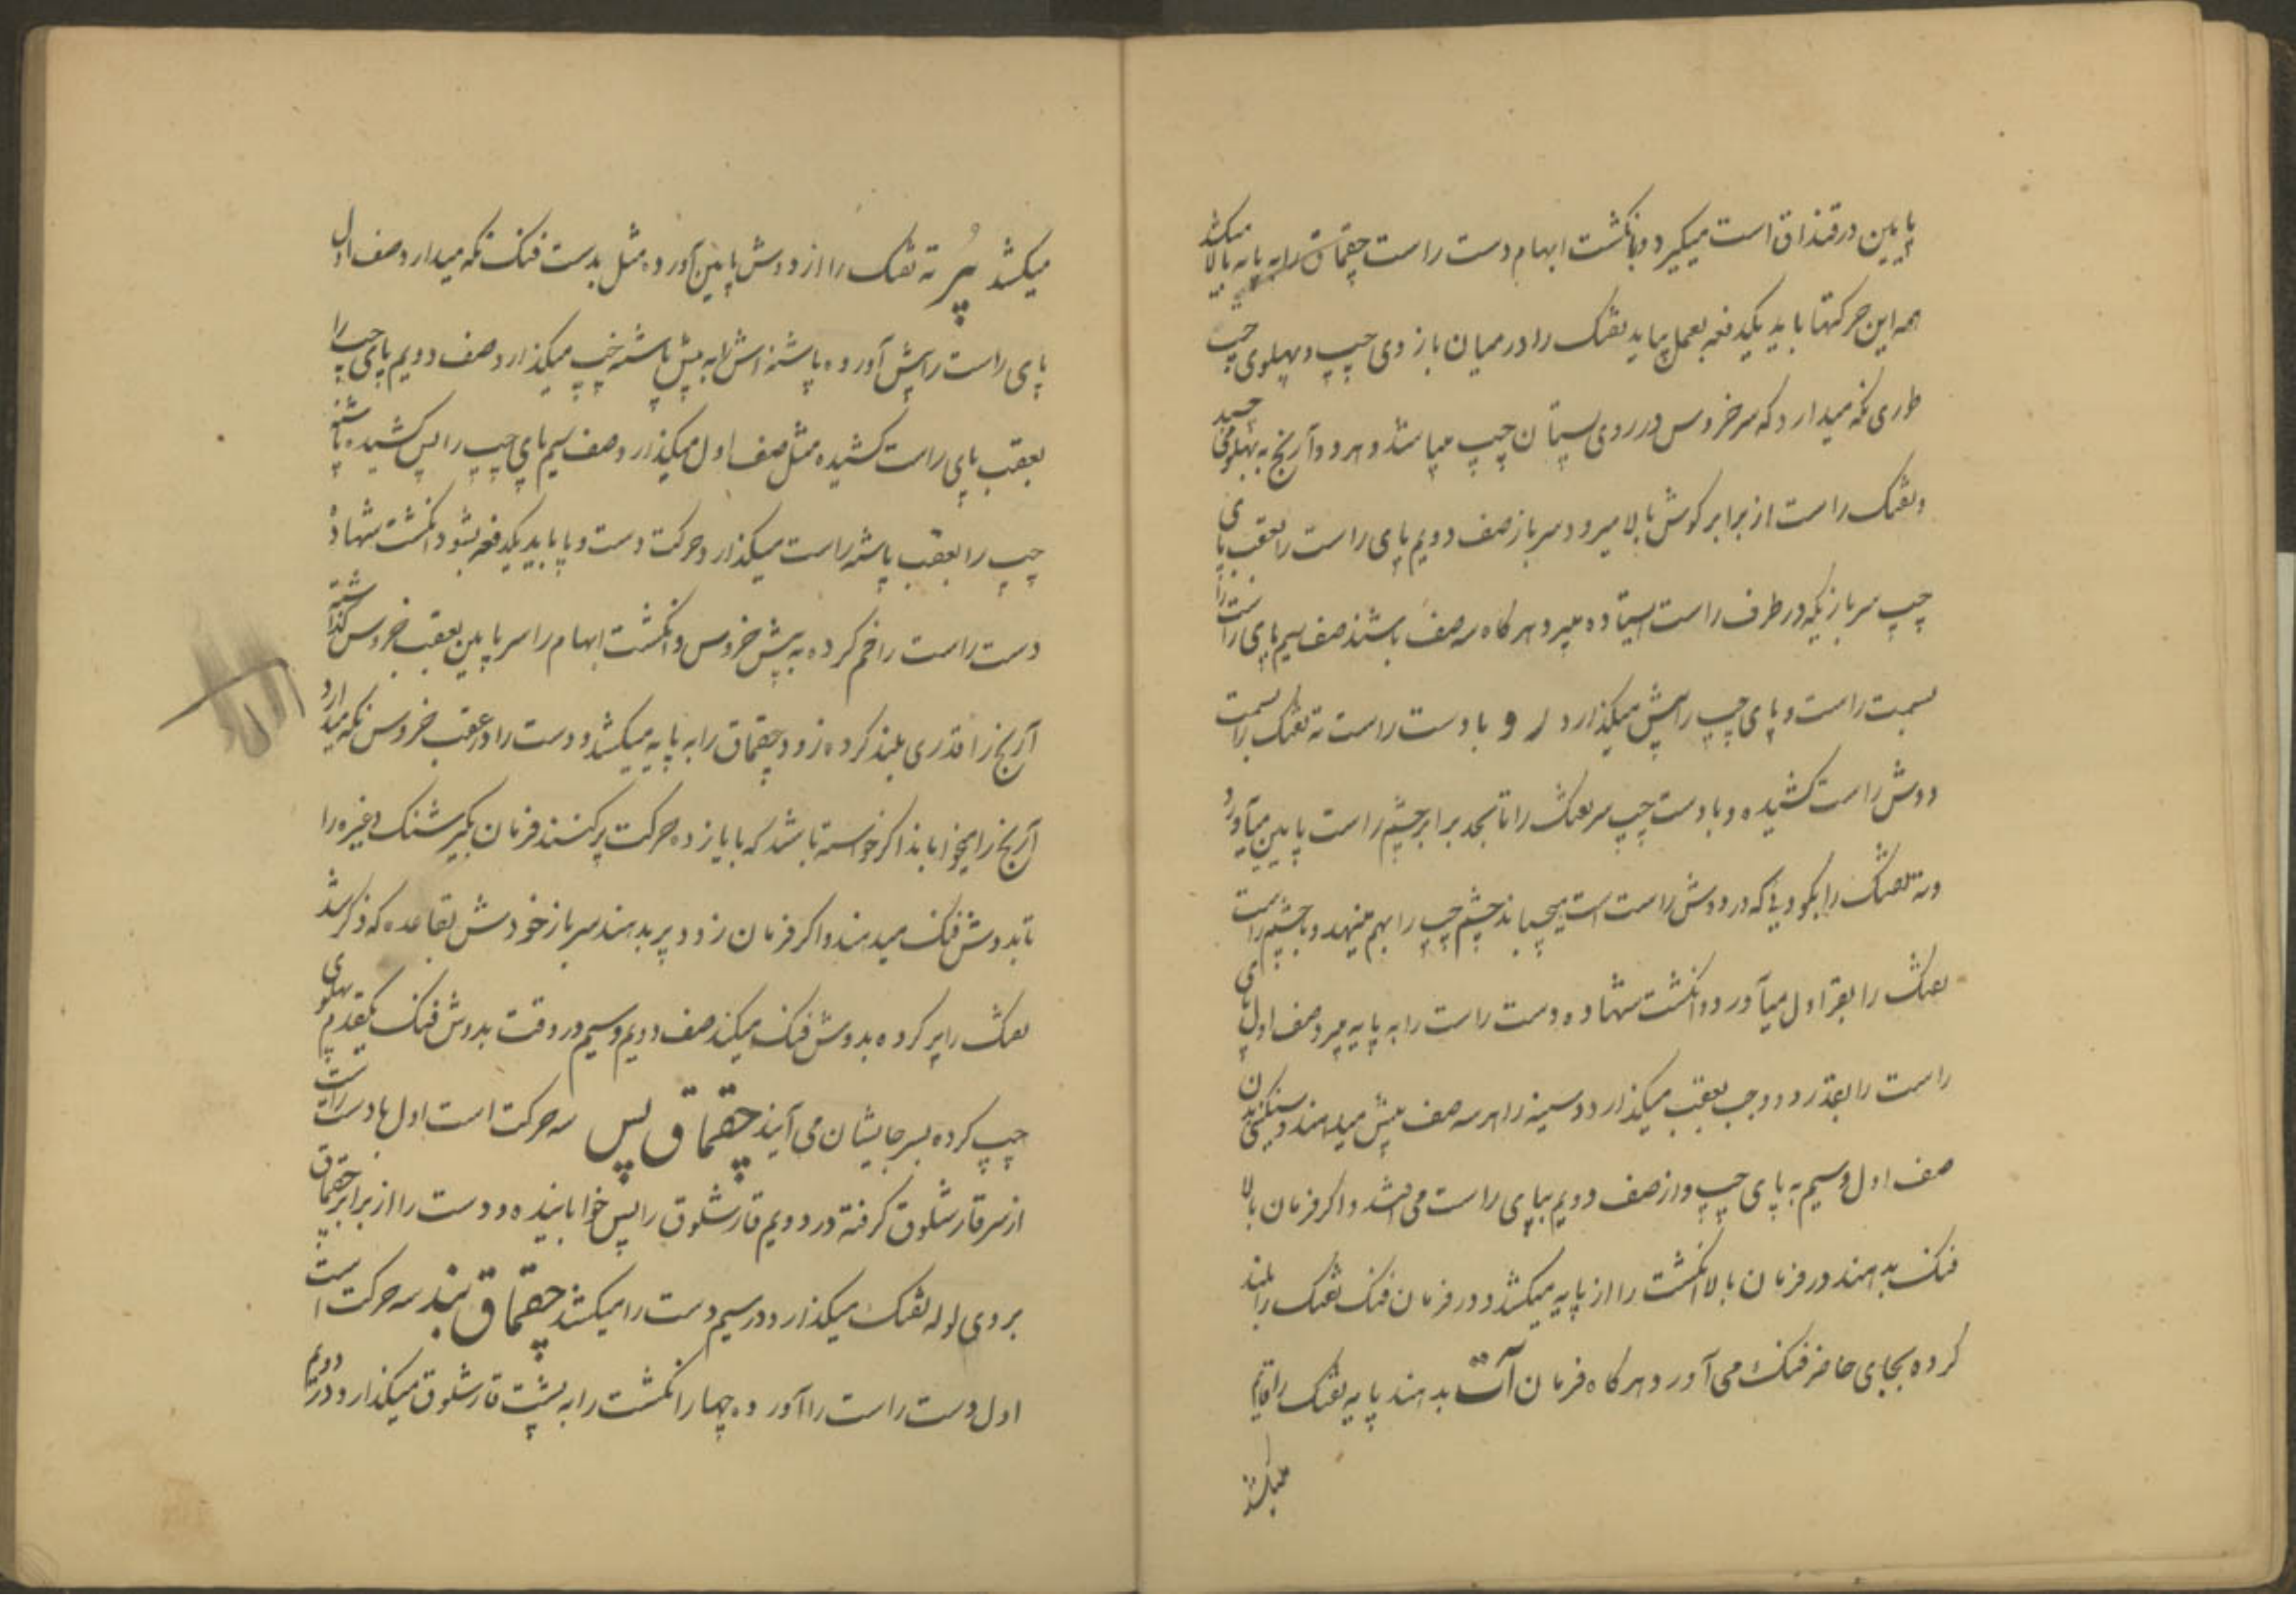 پایین در قنداق است میگیرد و بانکشت ابهام دست راست چقماق را به پایه بالا میکشد
همه این حرکتها باید یکدفعه بعمل بیاید تفنک را در میان بازوی چپ و پهلوی چپ
طوری نکه میدارد که سر خروس در روی پستان چپ میباشد و هر دو آرنج به پهلو می چسبد
و تفنک راست از برابر کوش بالا میرود سرباز صف دویم پای راست را بعقب پای
چپ سربازیکه در طرف راست ایستاده میبرد هرکاه سه صف باشند صف سیم پای راست را
بسمت راست و پای چپ را پیش میکذارد رو با دست راست ته تفنک را بسمت
دوش راست کشیده و با دست چپ سر تفنک را تا بحد برابر چشم راست پایین میآورد
و ته تفنک را بکودیی که در دوش راست است میچسباند چشم چپ را بهم مینهد و با چشم راست
تفنک را بقراول میآورد و انکشت شهاده دست راست را به پایه میبرد صف اول پای
راست را بقدر دو وجب بعقب میکذارد و سینه را هر سه صف پیش میدهند و سنکینی بدن
صف اول و سیم به پای چپ و از صف دویم بپای راست می افتد و اکر فرمان بالا
فنک بدهند در فرمان بالا انکشت را از پایه میکشد و در فرمان فنک تفنک را بلند
کرده بجای حاضر فنک می آورد و هرکاه فرمان آت بدهند پایه تفنک را قایم
میکشد
میکشد پُر ته تفنک را از دوش پایین آورده مثل بدست فنک نکه میدارد صف اول
پای راست را پیش آورده پاشنه اش را به پیش پاشنه چپ میکذارد صف دویم پای چپ را
بعقب پای راست کشیده مثل صف اول میکذارد صف سیم پای چپ را پس کشیده پاشنه
چپ را بعقب پاشنه راست میکذارد و حرکت دست و پا باید یکدفعه بشود انکشت شهاده
دست راست را خم کرده به پیش خروس و انکشت ابهام را سر پایین بعقب خروس کذاشته
آرنج را قدری بلند کرده زود چقماق را به پایه میکشد و دست را در عقب خروس نکه میدارد
آرنج را میخواباند اکر خواسته باشند که با یازده حرکت پر کنند فرمان بکیر شنک و غیره را
تا بدوش فنک میدهند و اکر فرمان زود پر بدهند سرباز خودش بقاعده که ذکر شد
تفنک را پر کرده بدوش فنک میکند صف دویم و سیم در وقت بدوش فنک یکقدم پهلوی
چپ کرده بسر جایشان می آیند چقماق پس سه حرکت است اول با دست راست
از سر قارشلوق کرفته در دویم قارشلوق را پس خوابانیده و دست را از برابر چقماق
بروی لوله تفنک میکذارد و در سیم دست را میکشد چقماق بند سه حرکت است
اول دست راست را آورده چهار انکشت را به پشت قارشلوق میکذارد و در دویم